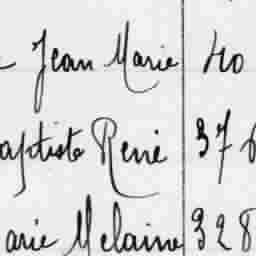 Jean Marie 40
aptiste René 376
arie Melaine 328